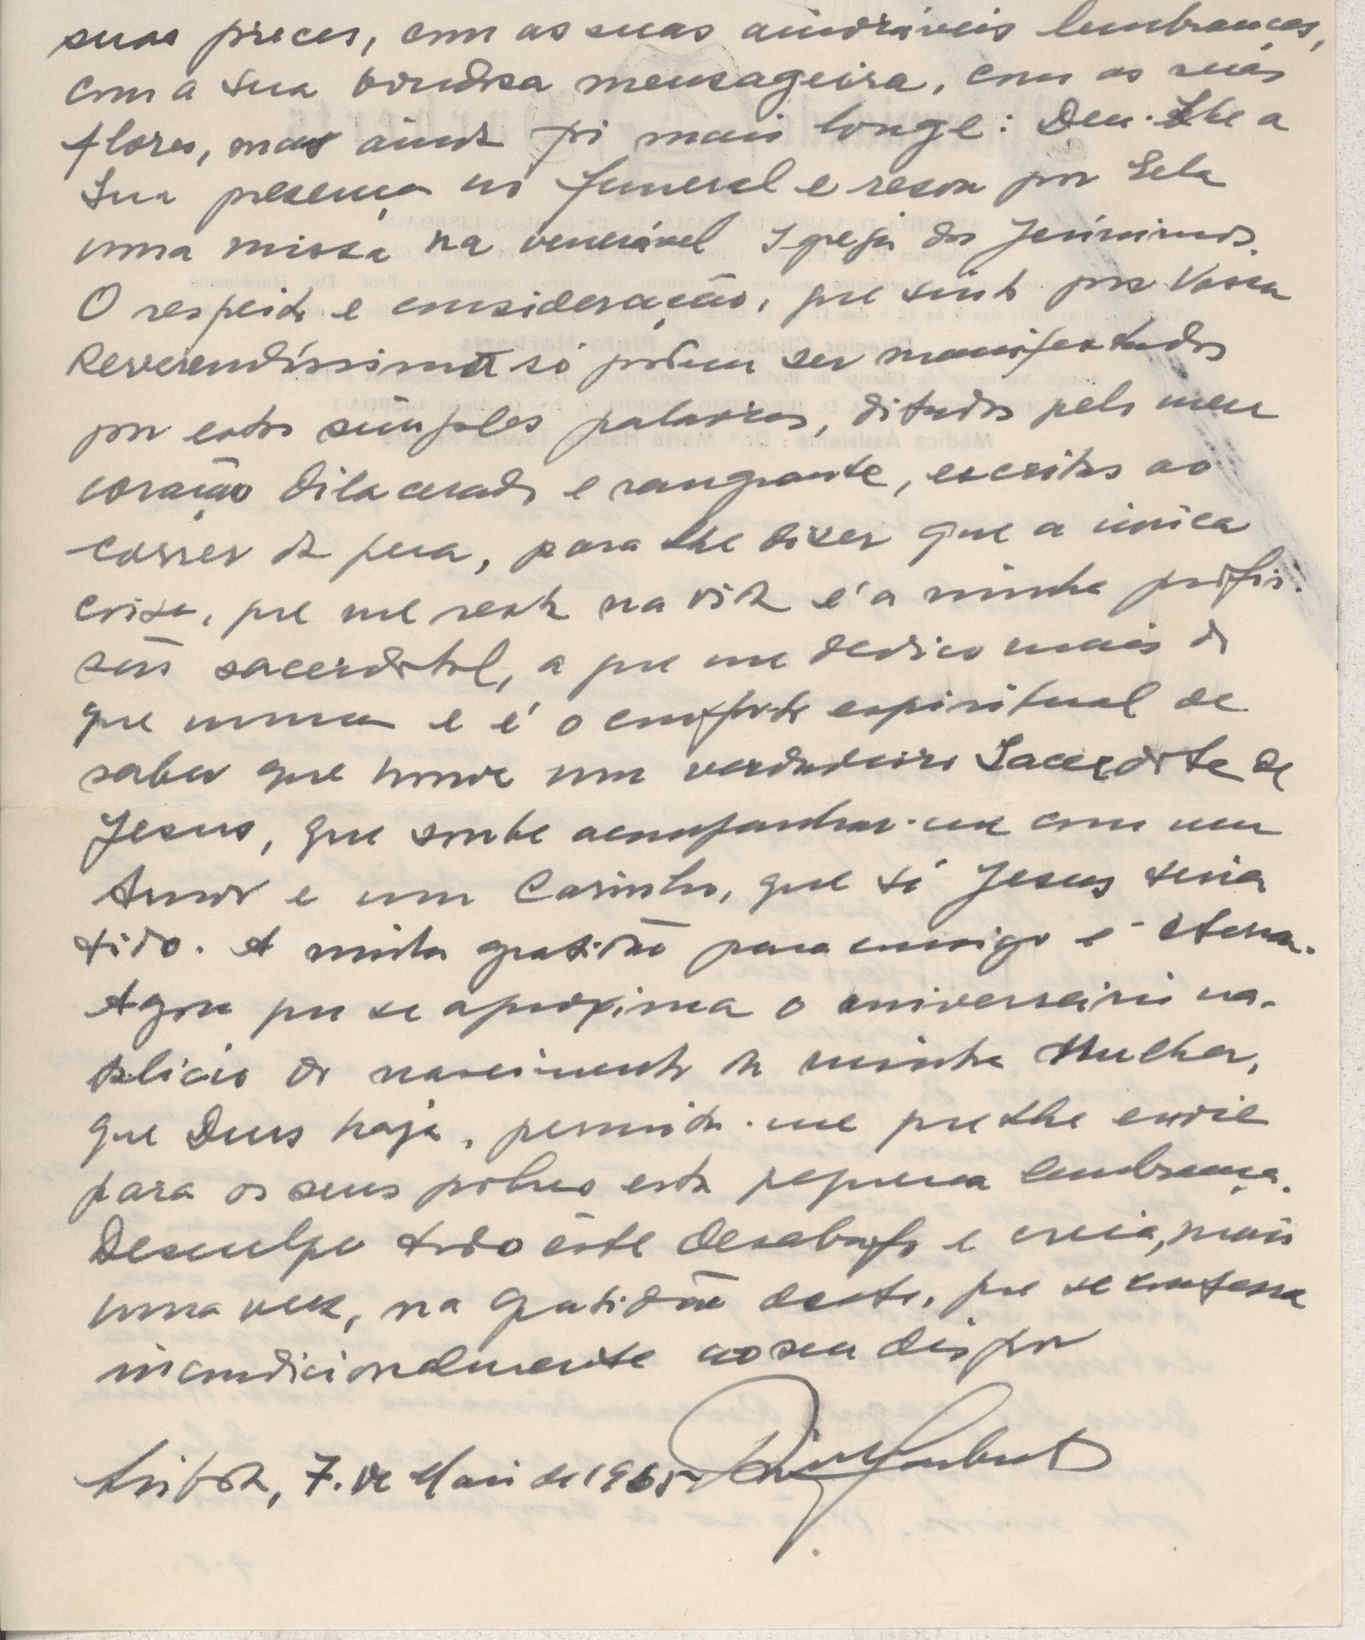 suas preces, com as suas adoráveis lembranças,
com a sua bondosa mensageira, com as suas
flores, mas ainda foi mais longe: Deu-Lhe a
Sua presença no funeral e resou por Ela
uma missa na venerável Igreja dos Jerónimos.
O respeito e consideração, que sinto por Vossa
Reverendíssima só podem ser manifestados
por estas simples palavras, ditadas pelo meu
coração dilacerado e sangrante, escritas ao
correr da pena, para lhe dizer que a única
coisa, que me resta na vida é a minha profis-
são sacerdotal, a que me dedico mais do
que nunca e é o conforto espiritual de
saber que houve um verdadeiro Sacerdote de
Jesus, que soube acompanhar-me com um
Amor e um Carinho, que só Jesus teria
tido. A minha gratidão para consigo é eterna.
Agora que se aproxima o aniversário na-
talício do nascimento da minha Mulher,
que Deus haja, permita-me que lhe envie
para os seus pobres esta pequena lembrança.
Desculpe todo êste desabafo e creia, mais
uma vez, na gratidão deste, que se confessa
incondicionalmente ao seu dispor
Lisboa, 7 de Maio de 1965